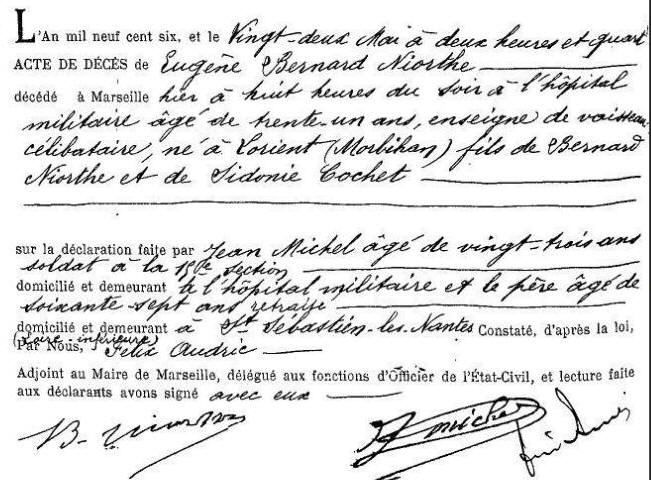 L'An mil neuf cent six, et le Vingt-deux Mai à deux heures et quart
ACTE DE DÉCÈS de Eugène Bernard Niorthe
décédé à Marseille hier à huit heures du soir à l'hôpital
militaire âgé de trente-un ans, enseigne de vaisseau
célibataire, né à Lorient (Morbihan) fils de Bernard
Niorthe et de Sidonie Cochet
sur la déclaration faite par Jean Michel âgé de vingt-trois ans
soldat à la 15e section
domicilié et demeurant à l'hôpital militaire et le père âgé de
soixante-sept ans retraité
domicilié et demeurant à St Sébastien-les-Nantes Constaté, d'après la loi,
(Loire-inférieure)
Par Nous, Félix Audric
Adjoint au Maire de Marseille, délégué aux fonctions d'Officier de l'État-Civil, et lecture faite
aux déclarants avons signé avec eux
B. Niorthe
Michel